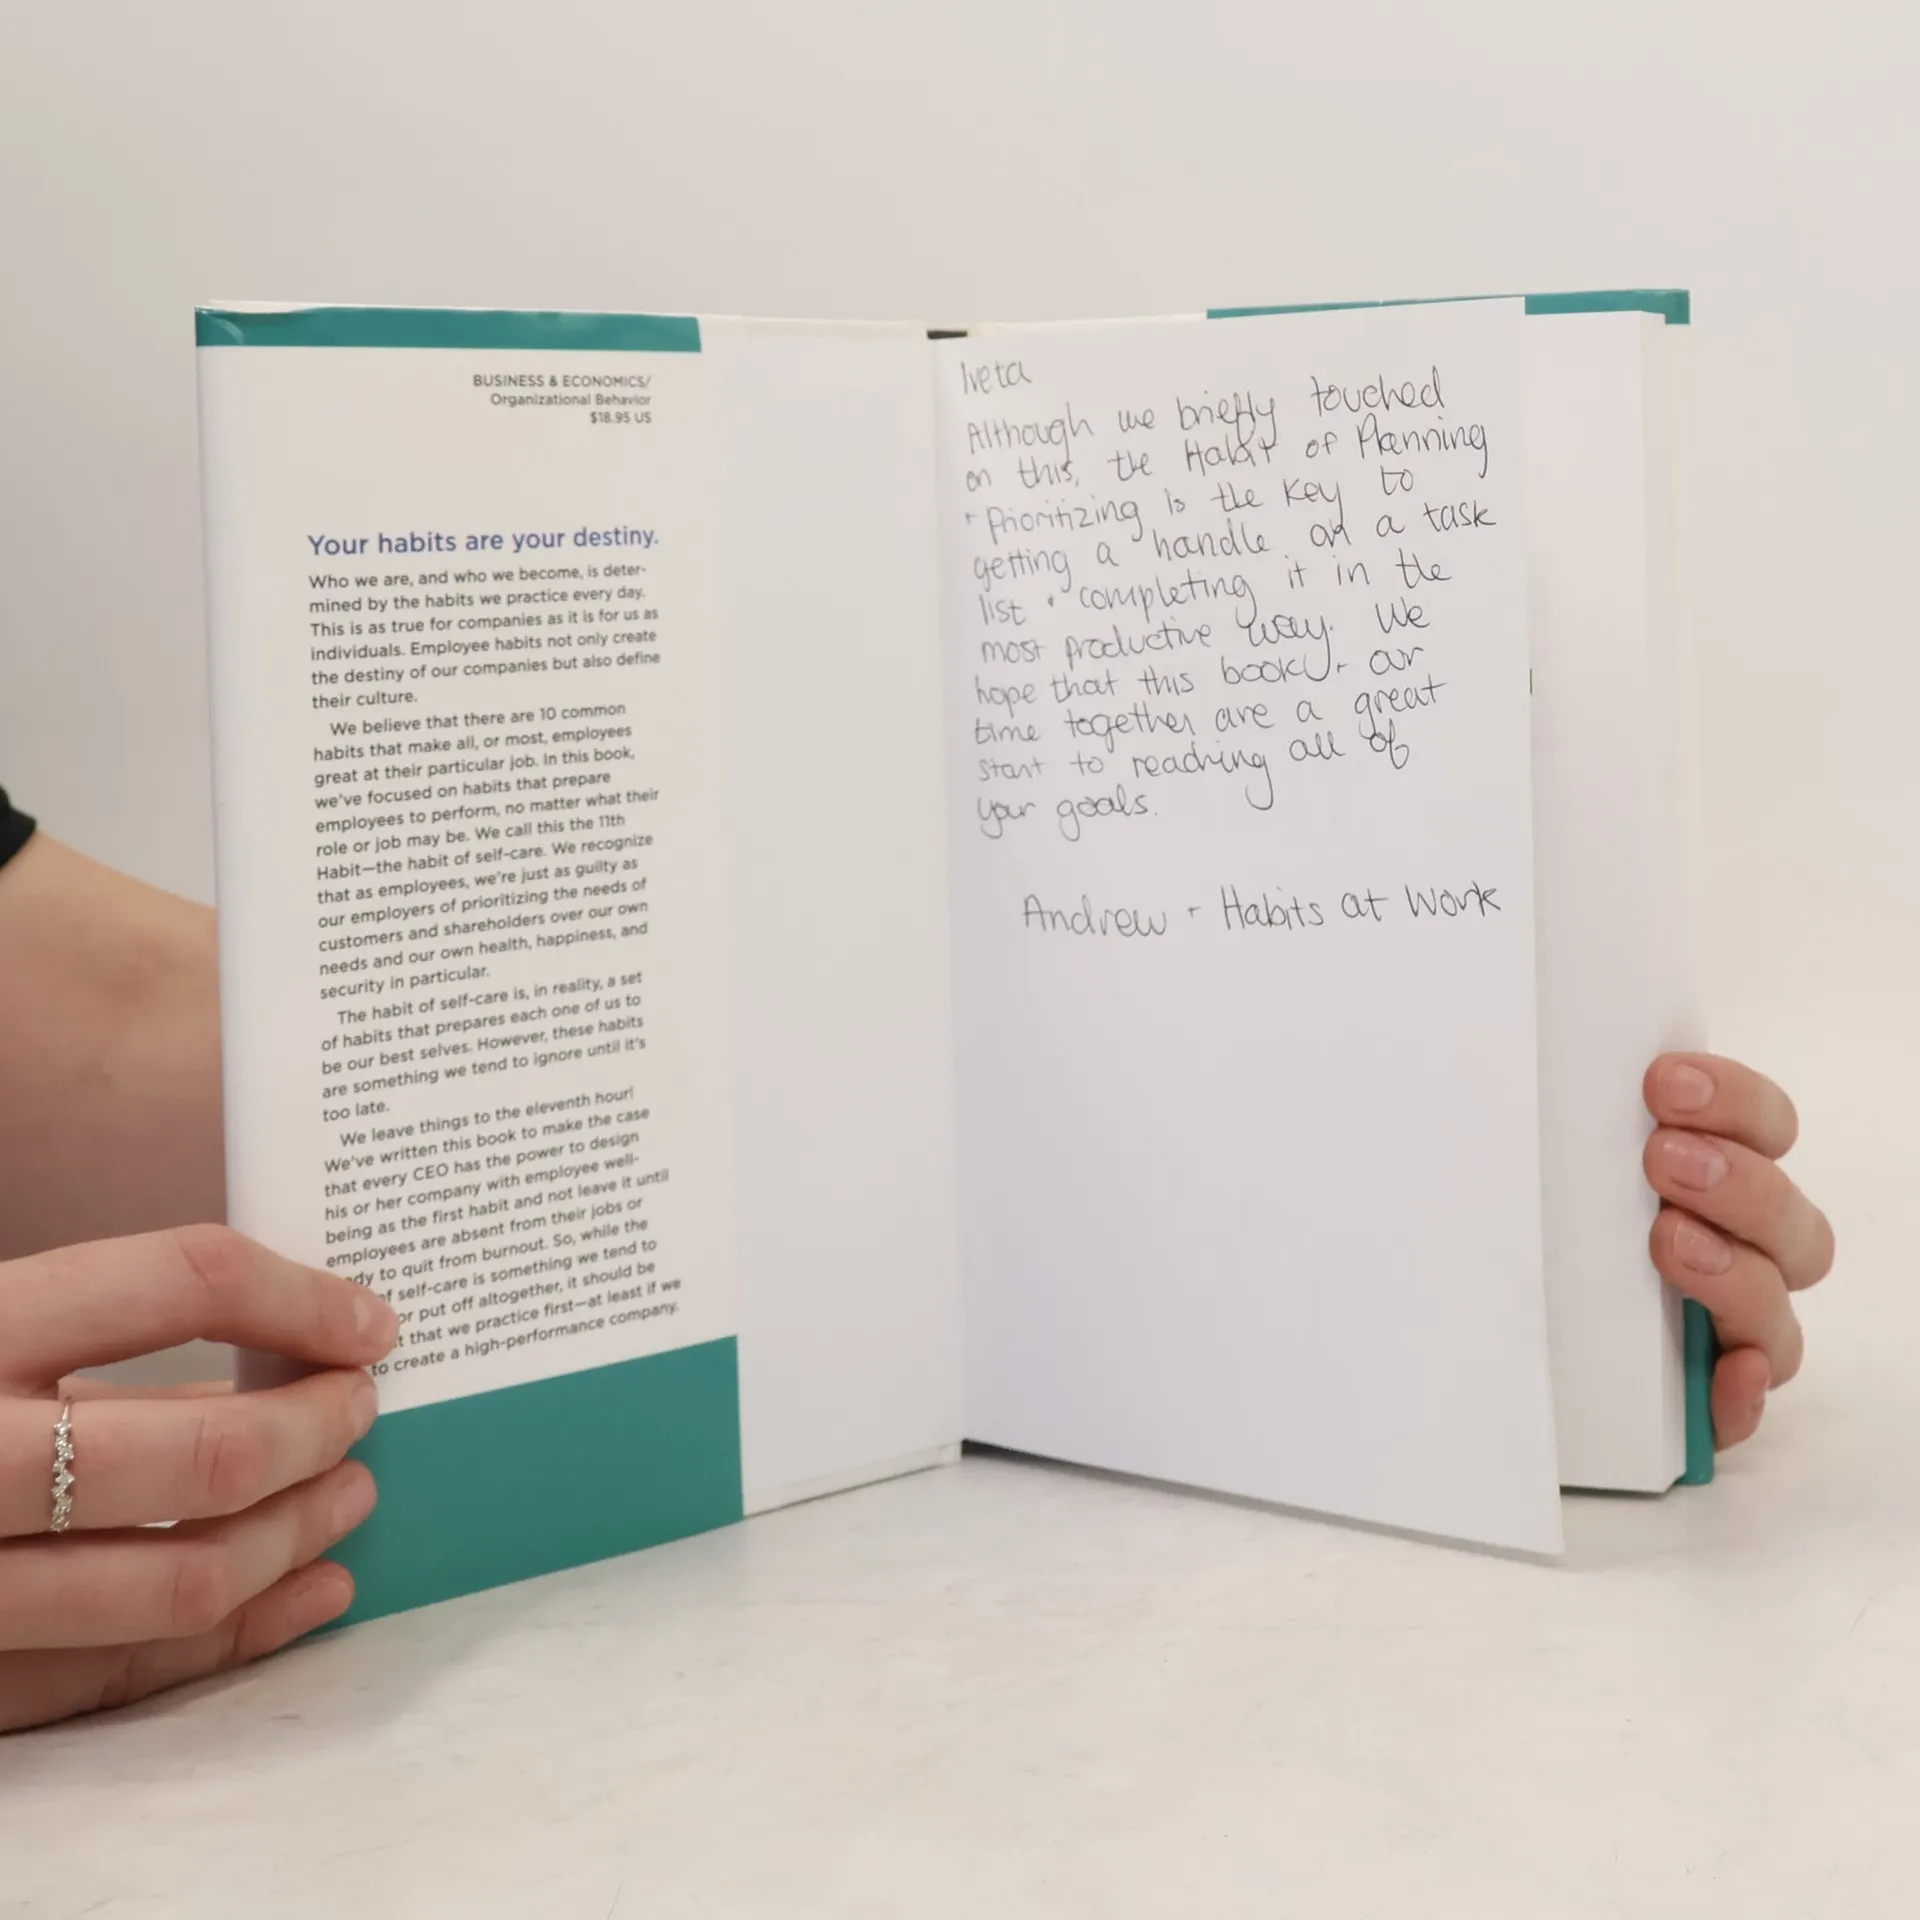 BUSINESS & ECONOMICS/
Organizational Behavior
$18.95 US
Your habits are your destiny.
Who we are, and who we become, is deter-
mined by the habits we practice every day.
This is as true for companies as it is for us as
individuals. Employee habits not only create
the destiny of our companies but also define
their culture.
We believe that there are 10 common
habits that make all, or most, employees
great at their particular job. In this book,
we've focused on habits that prepare
employees to perform, no matter what their
role or job may be. We call this the 11th
Habit—the habit of self-care. We recognize
that as employees, we're just as guilty as
our employers of prioritizing the needs of
customers and shareholders over our own
needs and our own health, happiness, and
security in particular.
The habit of self-care is, in reality, a set
of habits that prepares each one of us to
be our best selves. However, these habits
are something we tend to ignore until it's
too late.
We leave things to the eleventh hour!
We've written this book to make the case
that every CEO has the power to design
his or her company with employee well-
being as the first habit and not leave it until
employees are absent from their jobs or
dy to quit from burnout. So, while the
of self-care is something we tend to
or put off altogether, it should be
t that we practice first—at least if we
to create a high-performance company.
Iveta
Although we briefly touched
on this, the Habit of Planning
+ Prioritizing is the key to
getting a handle on a task
list + completing it in the
most productive way. We
hope that this book + our
time together are a great
start to reaching all of
your goals.
Andrew + Habits at Work